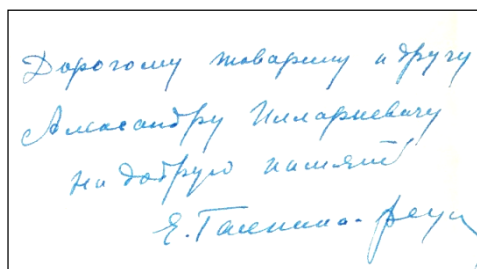 Дорогому товарищу и другу
Александру Илларьевичу
на добрую память
Е.